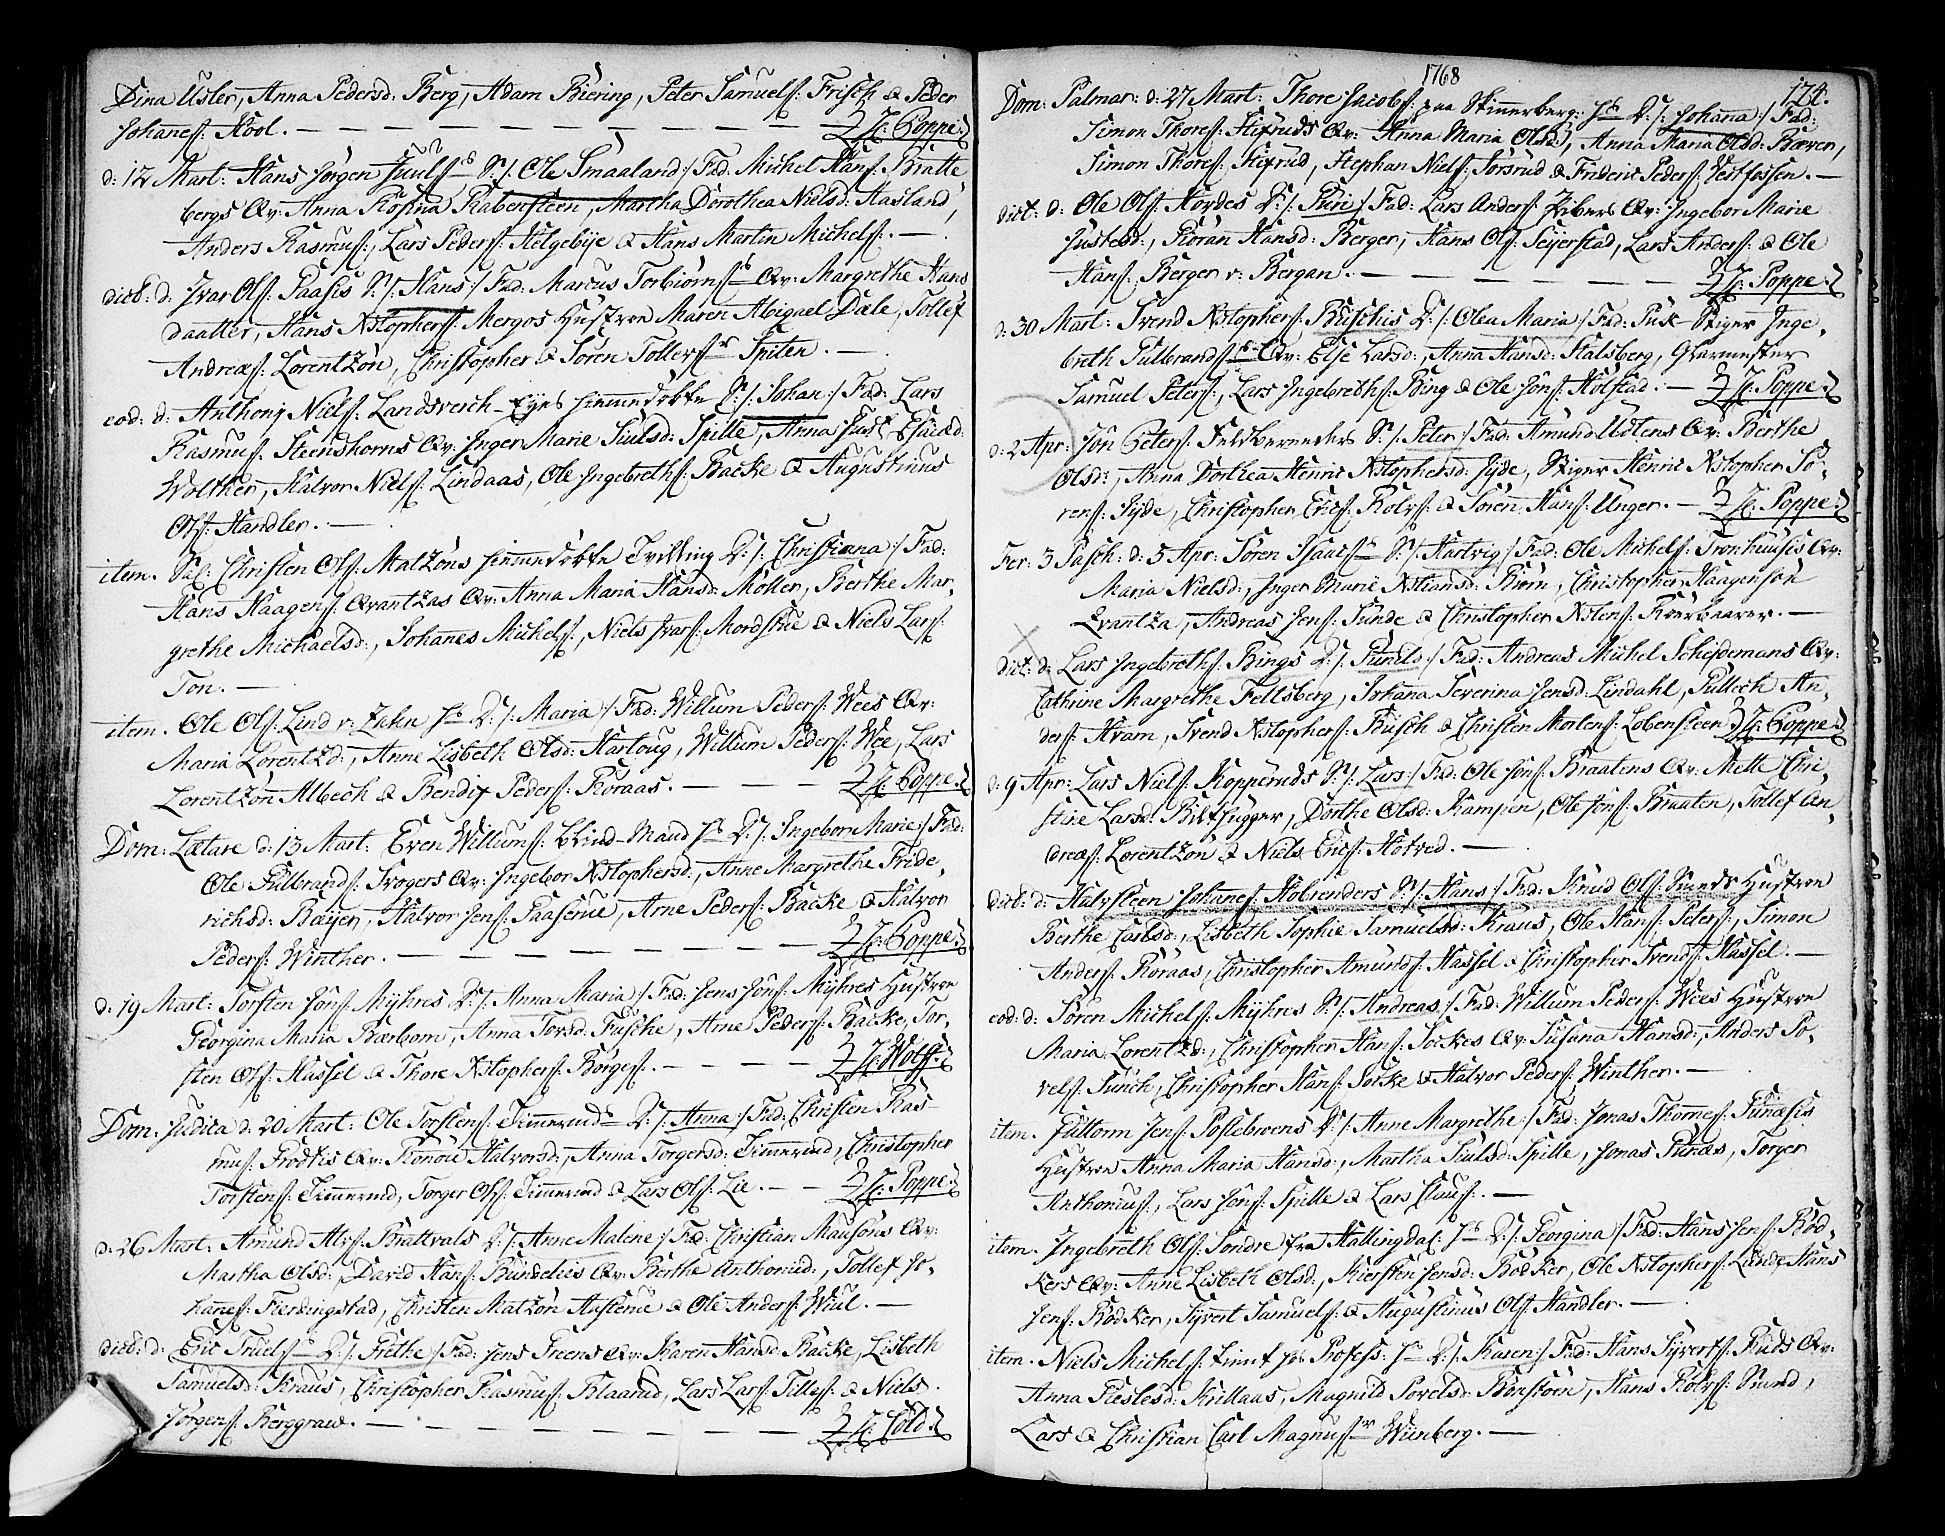 Dina Usler, Anna Pedersd: Berg, Adam Biering, Peter Samuels: Frisch & Peder
Johanes: Kool. — H: Poppe
d: 12 Mart: Hans Jørgen Juuls S:/: Ole Smaaland:/ Fad: Michel Hans: Bratte
bergs Qv: Anna Rosina Rabensteen, Martha Dorothea Nielsd: Hasland,
Anders Rasmus:, Lars Peders: Helgebije & Hans Martin Michels:. —
dict: d: Ivar Ols: Paasis S:/: Hans:/ Fad: Marcus Torbiørns: Qv: Margrethe Hans
daatter, Hans Xstophers: Mergos Hustroe Maren Abigael Dale, Tollef
Andreæs: Lorentzøn, Christopher & Søren Tollers: Spiten. —
eod: d: Anthonj Niels: Landsverch Eyes hiemmedøbte S:/: Johan:/ Fad: Lars
Rasmus: Steenshorns Qv: Inger Marie Juulsd: Spille, Anna
Wolther, Halvor Niels: Lindaas, Ole Ingebreths: Backe & Augustinus
Ols: Handler. —
item. Sal: Christen Ols: Matzøns hiemmedøbte Tvilling D:/: Christiana:/ Fad:
Hans Haagens: Qvantzas Qv: Anna Maria Hansd: Møller, Berthe Mar-
grethe Michaelsd:, Johanes Michels:, Niels Ivars: Mordstue & Niels Lars:
Ton. —
item. Ole Ols: Lind v: Zahn D:/: Maria:/ Fad: Willum Peders: Wees Qv:
Maria Lorentzd:, Anne Lisbeth Olsd: Hartoug, Willum Peders: Wee, Lars
Lorentzøn Albech & Bendix Peders: Roraas. — H: Poppe
Dom: Lætare d: 13 Mart: Even Willums: Blind-Mand D:/: Ingeborn Marie:/ Fad:
Ole Gulbrands: Ivogers Qv: Ingebor Xstophersd:, Anne Margrethe Fride-
richsd: Bæyer, Halvor Jens: Paaserue, Arne Peders: Backe & Halvor
Peders: Winther. — H: Poppe
d: 19 Mart: Torsten Jøns: Myhres D:/: Anna Maria:/ Fad: Jens Jøns: Myhres Hustroe
Georgina Maria Bærbom, Anna Torsd: Fusche, Arne Peders: Backe, Tor-
sten Ols: Hassel & Thore Xstophers: Børges:. — H: Wolff
Dom: Judica d: 20 Mart: Ole Torstens: Timmerud D:/: Anna:/ Fad: Christen Ras-
mus: Frodtis Qv: Ronoue Halvorsd:, Anna Torgersd: Timmerud, Christopher
Torstens: Timmerud, Torger Ols: Timmerud & Lars Ols: Lie. — H: Poppe
d: 26 Mart: Amund Alvs: Brattvals D:/: Anne Malene:/ Fad: Christian Mausøns Qv:
Martha Olsd:, David Hans: Bundelies Qv: Berthe Anthonid:, Tollef Jo-
hanes: Fierdingstad, Christen Matzøn Aasterue & Ole Anders: Wiul. —
dict: d: Eric Truels: D:/: Grethe:/ Fad: Jens Greens Qv: Karen Hansd: Backe, Lisbeth
Samuelsd: Kraus, Christopher Rasmus: Flaarud, Lars Lars: Tilles: & Niels
Jørgens: Berggraw. — H: Cold
1768
124.
Dom: Palmar: d: 27 Mart: Thore Jacobs: paa Skinnerberg: D:/: Johanna:/ Fad:
Simon Thores: Stixruds Qv: Anna Maria Olsd:, Anna Maria Olsd: Bæver,
Simon Thores: Stixrud, Stephan Niels: Sørsrud & Frideric Peders: Vestfossen. —
dict: d: Ole Ols: Hovdes D:/: Guri:/ Fad: Lars Anders: Qv: Ingebor Marie
Justesd:, Gøran Hansd: Berger, Hans Ols: Seyerstad, Lars Anders: & Ole
Hans: Berger v: Bergan. — H: Poppe
d: 30 Mart: Svend Xstophers: Buschis D:/: Olea Maria:/ Fad: Stiger Inge-
breth Gulbrands: Qv: Else Larsd:, Anna Hansd: Stalsberg, Glarmester
Samuel Peters:, Lars Ingebreths: Bing & Ole Jøns: Holstad. — H: Poppe
d: 2 Apr: Jøn Peters: S:/: Peter:/ Fad: Amund Udtens Qv: Berthe
Olsd:, Anna Dorthea Henric Xstophersd: Gyde, Stiger Henric Xstopher Sø-
rens: Gyde, Christopher Erics: Rolvs: & Søren Hans: Unger. — H: Poppe
Fer: 3 Pasch: d: 5 Apr: Søren Isaacs: S:/: Hartvig:/ Fad: Ole Michels: Tronhuusis Qv:
Maria Nielsd:, Inger Marie Xstiansd: Biørn, Christopher Haagensøn
Qvantza, Andreas Jens: Sunde & Christopher Xstens: —
dict: d: Lars Ingebreths: Bings D:/: Gunild:/ Fad: Andreas Michel Scheidemans Qv:
Cathrine Margrethe Fellsberg, Johana Severina Jensd: Lindahl, Gullich An-
ders: Hvam, Svend Xstophers: Busch & Christen Mortens: Lobensteen H: Poppe
d: 9 Apr: Lars Niels: Kopperuds S:/: Lars:/ Fad: Ole Jøns: Braatens Qv: Mette Chri-
stine Larsd: Biltzugger, Dorthe Olsd: Kampen, Ole Jøns: Braaten, Tollef An-
dreæs: Lorentzøn & Niels Erics: Hotved. —
dict: d: Halvsteen Johanes: Kobrenders S:/: Hans:/ Fad: Knud Ols: Hustroe
Berthe Carlsd:, Lisbeth Sophie Samuelsd: Kraus, Ole Hans: Peters:, Simon
Anders: Roraas, Christopher Amunds: Hassel & Christopher Svends: Hassel. —
eod: d: Søren Michels: Myhres S:/: Andreas:/ Fad: Willum Peders: Wees Hustroe
Maria Lorentzd:, Christopher Hans: Sockes Qv: Susana Hansd:, Anders Po-
vels: Junch, Christopher Hans: Socke & Halvor Peders: Winther. —
item. Guttorm Jens: Poslebroens D:/: Anne Margrethe:/ Fad: Jonas Thomes: Funæsis
Hustroe Anna Maria Hansd:, Martha Juulsd: Spille, Jonas Funæs, Torger
Anthonius:, Lars Jøns: Spille & Lars Claus:. —
item. Ingebreth Ols: Søndre fra Hallingdal: D:/: Georgina:/ Fad: Hans Jens: Bød-
kers Qv: Anne Lisbeth Olsd:, Kiersten Jensd: Bødker, Ole Xstophers: Lund, Hans
Jens: Bødker, Syvert Samuels: & Augustinus Ols: Handler. —
item. Niels Michels: D:/: Karen:/ Fad: Hans Syverts: Ruds Qv:
Anna Gieslesd: Kullaas, Magnild Povelsd: Bonstoen, Hans Rolvs: Smed,
Lars & Christian Carl Magnus: Wiinberg. —